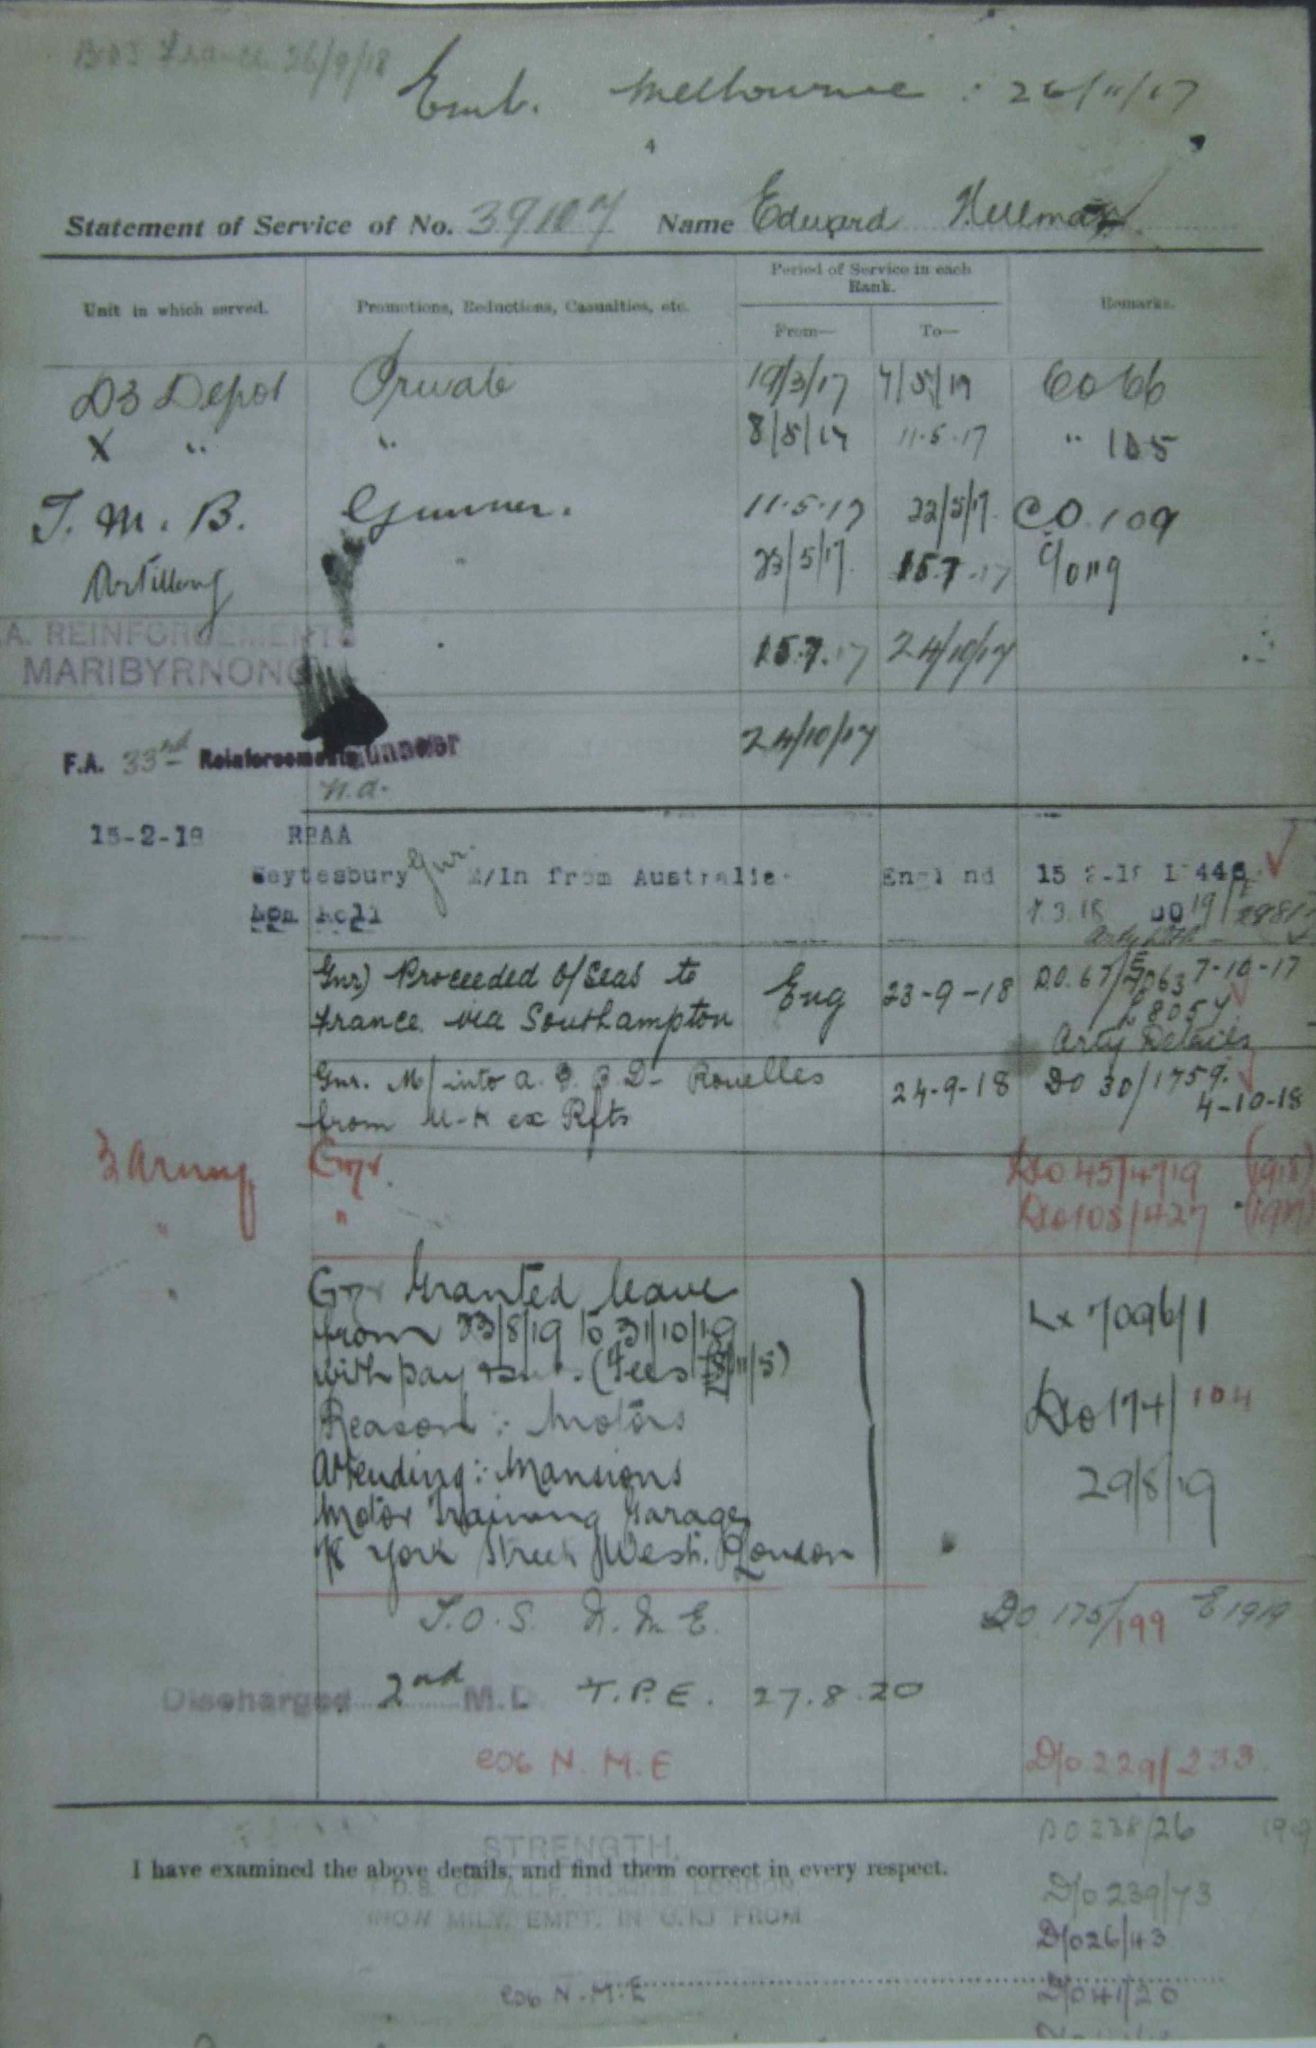 France 26/9/18
Emb. Melbourne : 26/11/17
4
Statement of Service of No. 39107 Name Edward
Period of Service in each Rank.
Unit in which served. Promotions, Reductions, Casualties, etc. From— To— Remarks.
D3 Depot Private 19/3/17 7/5/17 CO 66
X " " 8/5/17 11.5.17 " 105
T. M. B. Gunner. 11.5.17 22/5/17. CO 109
Artillery " 23/5/17. 15.7.17 C/O 119
A. REINFORCEMENTS
MARIBYRNONG 15.7.17 24/10/17
F.A. 33rd Reinforcements Gunner 24/10/17
n.a.
15-2-18 RBAA
Heytesbury Gnr. M/In from Australia England 15 2-18 L 446
Nom Roll 7.3.18 DO 19/
Gnr) Proceeded O/Seas to Eng 23-9-18 DO. 67/ 7-10-17
France via Southampton
Arty Details
Gnr. M/into a. Rouelles 24-9-18 DO 30/1759.
from U-K ex Rfts 4-10-18
Gnr. D/O 45/4719 (1918)
" D/O 108/427
Gnr Granted leave
from 23/8/19 to 31/10/19 7096/1
with pay (Fees
Reason : Motors D/O 174/104
Attending : Mansions 29/8/19
Motor Training Garage
York Street West. London
T.O.S. N.M.E. DO 175/199 1919
Discharged 2nd M.D. T.P.E. 27.8.20
N.M.E D/O 229/233
STRENGTH. DO 238/26
I have examined the above details, and find them correct in every respect.
OF A.I.F. LONDON. D/O 239/73
(NON MILY. EMPT. IN U.K.) FROM D/O 26/43
N.M.E D/O 41/20